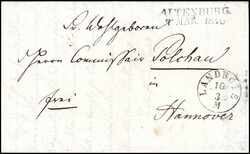 ALTENBURG
MAR. 1846
Sr. Wohlgeboren
Herrn Commissair Polchau
in
frei
Hannover
LANDBOTE
10
3
M